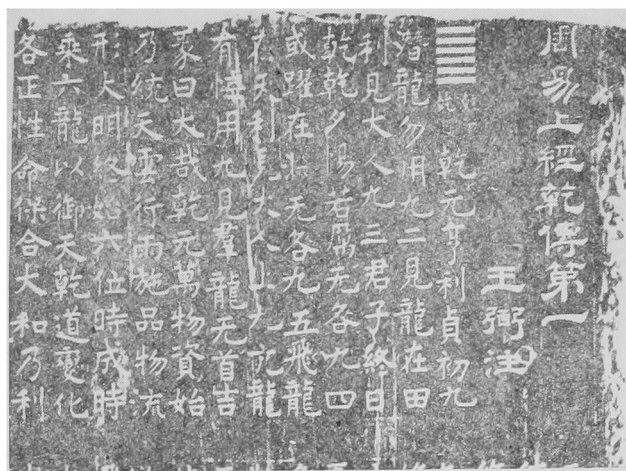 周易上經乾傳第一
王弼注
䷀乾元亨利貞初九
潛龍勿用九二見龍在田
利見大人九三君子終日
乾乾夕惕若厲无咎九四
或躍在淵无咎九五飛龍
在天利見大人上九亢龍
有悔用九見羣龍无首吉
彖曰大哉乾元萬物資始
乃統天雲行雨施品物流
形大明終始六位時成時
乘六龍以御天乾道變化
各正性命保合大和乃利